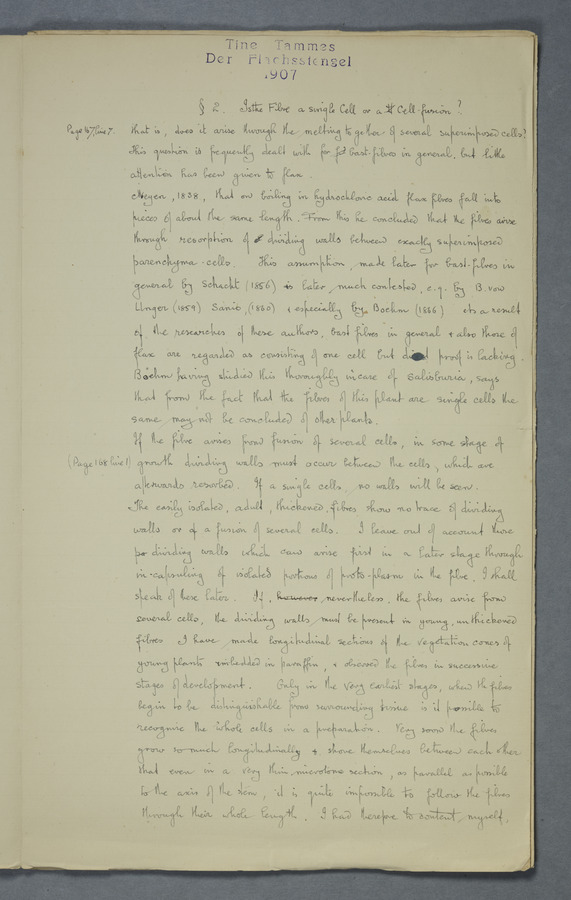 Tine Tammes
Der Flachsstengel
1907
§ 2. Is the Fibre a single Cell or a Cell-fusion?
Page 167/line 7. that is, does it arise through the melting together of several superimposed cells?
This question is frequently dealt with for bast-fibres in general, but little
attention has been given to flax.
Meyen, 1838, that on boiling in hydrochloric acid flax fibres fall into
pieces of about the same length. From this he concluded that the fibres arise
through resorption of dividing walls between exactly superimposed
parenchyma-cells. This assumption, made later for bast-fibres in
general by Schacht (1856) is later much contested, e.g. by B. von
Unger (1859) Sanio, (1860) & especially by Boehm (1866) As a result
of the researches of these authors, bast fibres in general & also those of
flax are regarded as consisting of one cell but proof is lacking.
Boehm having studied this thoroughly in case of Salisburia, says
that from the fact that the fibres of this plant are single cells the
same may not be concluded of other plants.
If the fibre arises from fusion of several cells, in some stage of
(Page 168 line 1) growth dividing walls must occur between the cells, which are
afterwards resorbed. If a single cells, no walls will be seen.
The easily isolated, adult, thickened fibres show no trace of dividing
walls or of a fusion of several cells. I leave out of account those
dividing walls which can arise first in a later stage through
in-capsuling of isolated portions of proto-plasm in the fibre. I shall
speak of these later. If, however, nevertheless, the fibres arise from
several cells, the dividing walls must be present in young, unthickened
fibres I have made longitudinal sections of the vegetation cones of
young plants embedded in paraffin, & observed the fibres in successive
stages of development. Only in the very earliest stages, when the fibres
begin to be distinguishable from surrounding tissue is it possible to
recognise the whole cells in a preparation. Very soon the fibres
grow so much longitudinally & shove themselves between each other
that even in a very thin microtome section, as parallel as possible
to the axis of the stem, it is quite impossible to follow the fibres
through their whole length. I had therefore to content myself,